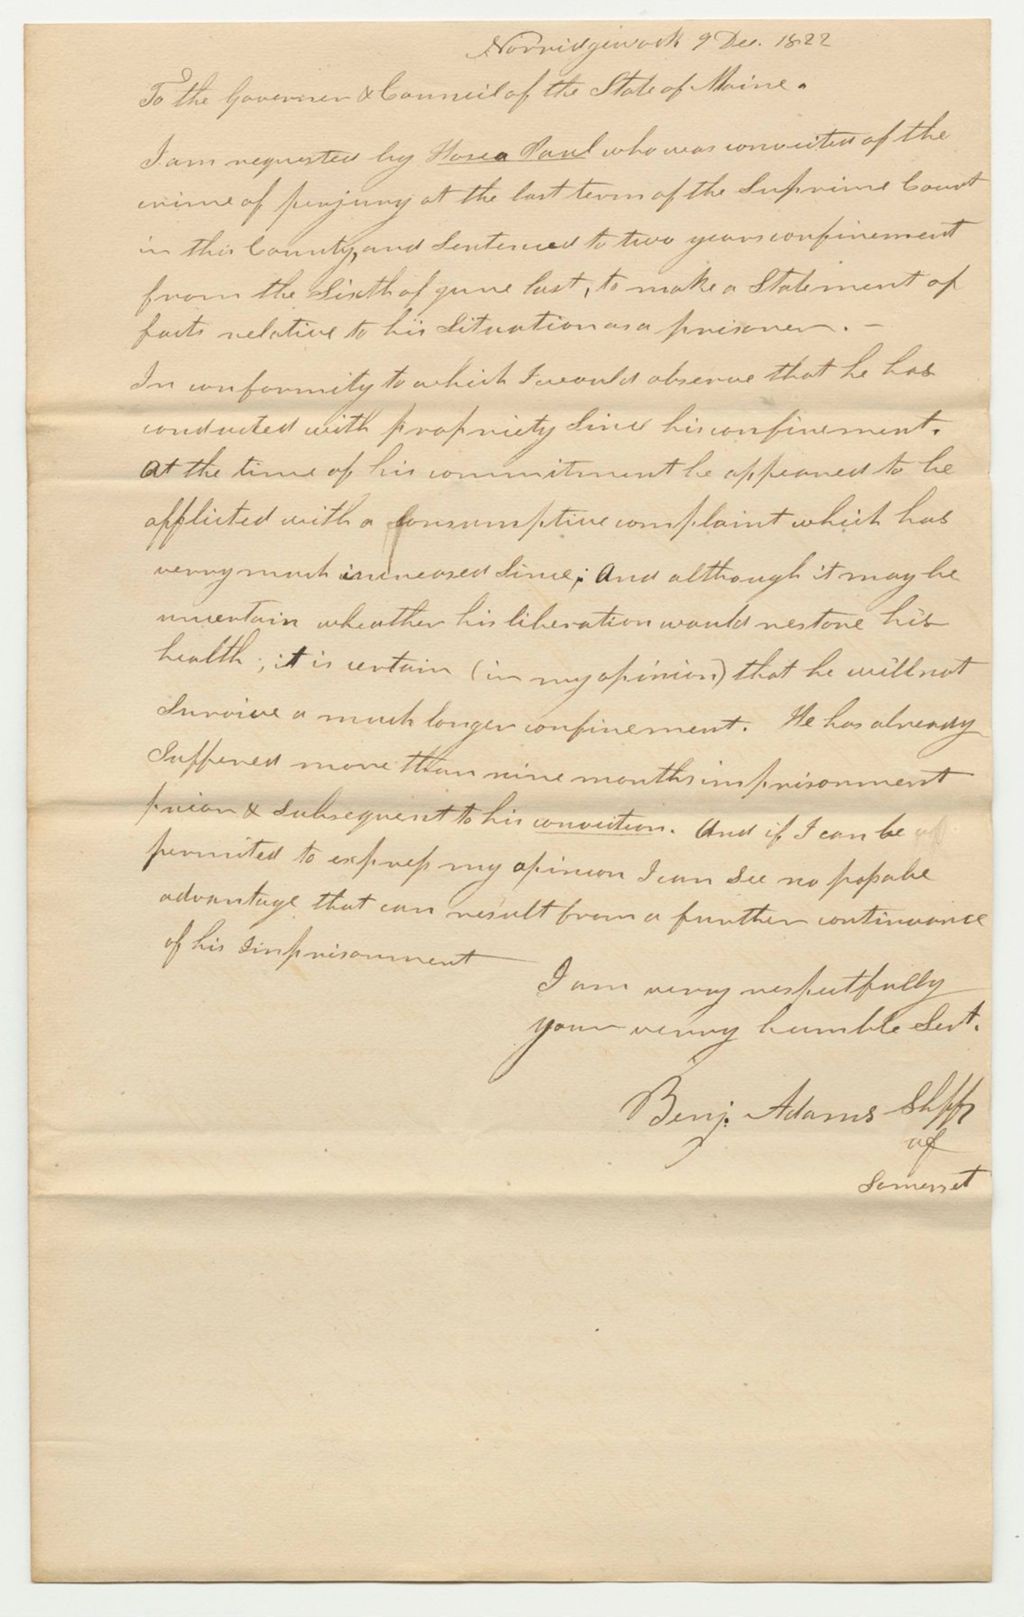 Norridgewock 9 Dec. 1822
To the Governer & Council of the State of Maine.
I am requested by Hosea Paul who was convicted of the
crime of perjury at the last term of the Suprime Court
in this County, and Sentenced to two years confinement
from the Sixth of June last, to make a Statement of
facts relative to his Situation as a prisoner. —
In conformity to which I would observe that he has
conducted with propriety Since his confinement.
At the time of his commitment he appeared to be
afflicted with a Consumptive complaint which has
verry much increased Since; And although it may be
uncertain wheather his liberation would restore his
health; it is certain (in my opinion) that he will not
Survive a much longer confinement. He has already
Suffered more than nine months imprisonment
prior & Subsequent to his conviction. And if I can be
permited to express my opinion I can See no posable
advantage that can result from a further continuance
of his Imprisonment
I am verry respectfully
your verry humble Sert.
Benj. Adams Shff
of
Somerset